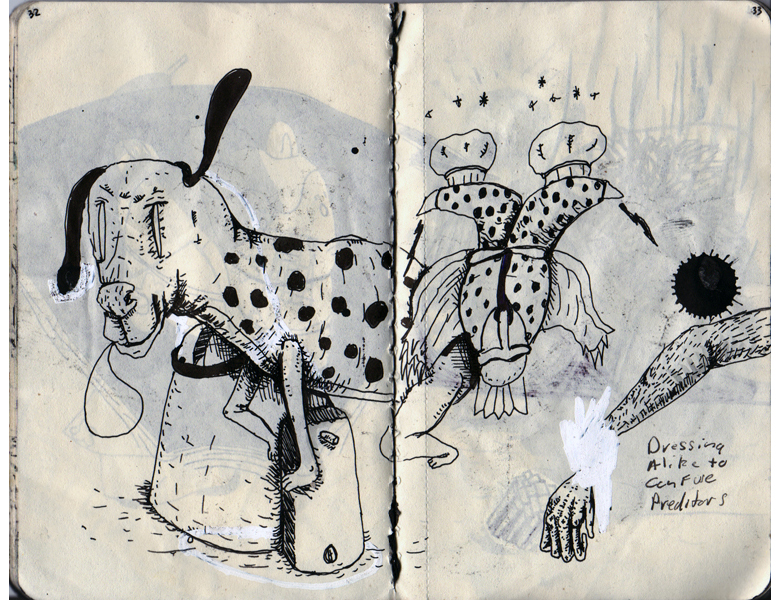 32
33
Dressing
Alike to
Confuse
Preditors